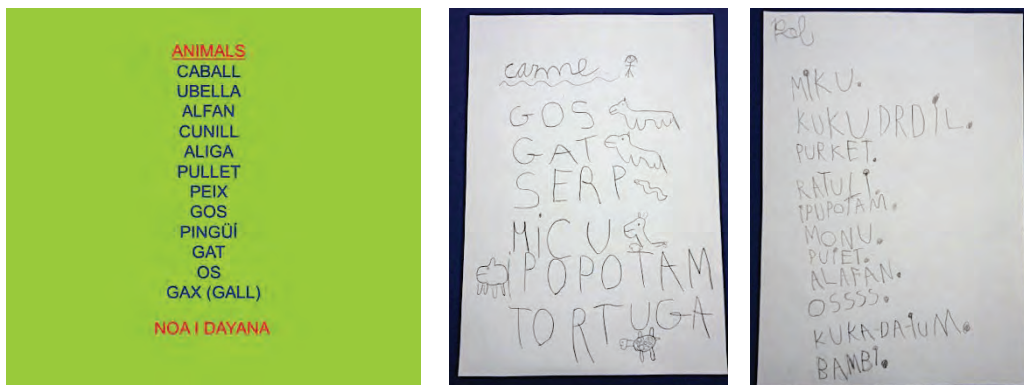 ANIMALS
CABALL
UBELLA
ALFAN
CUNILL
ALIGA
PULLET
PEIX
GOS
PINGÜÍ
GAT
OS
GAX (GALL)
NOA I DAYANA
carme
GOS
GAT
SERP
MiCU
IPOPOTAM
TORTUGA
Pol
MiKU.
KUKUDRDIL.
PURKET.
RATULI.
IPUPOTAM.
MONU.
PUIET.
ALAFAN.
OSSSS.
KUKA-DA-iUM.
BAMBI.